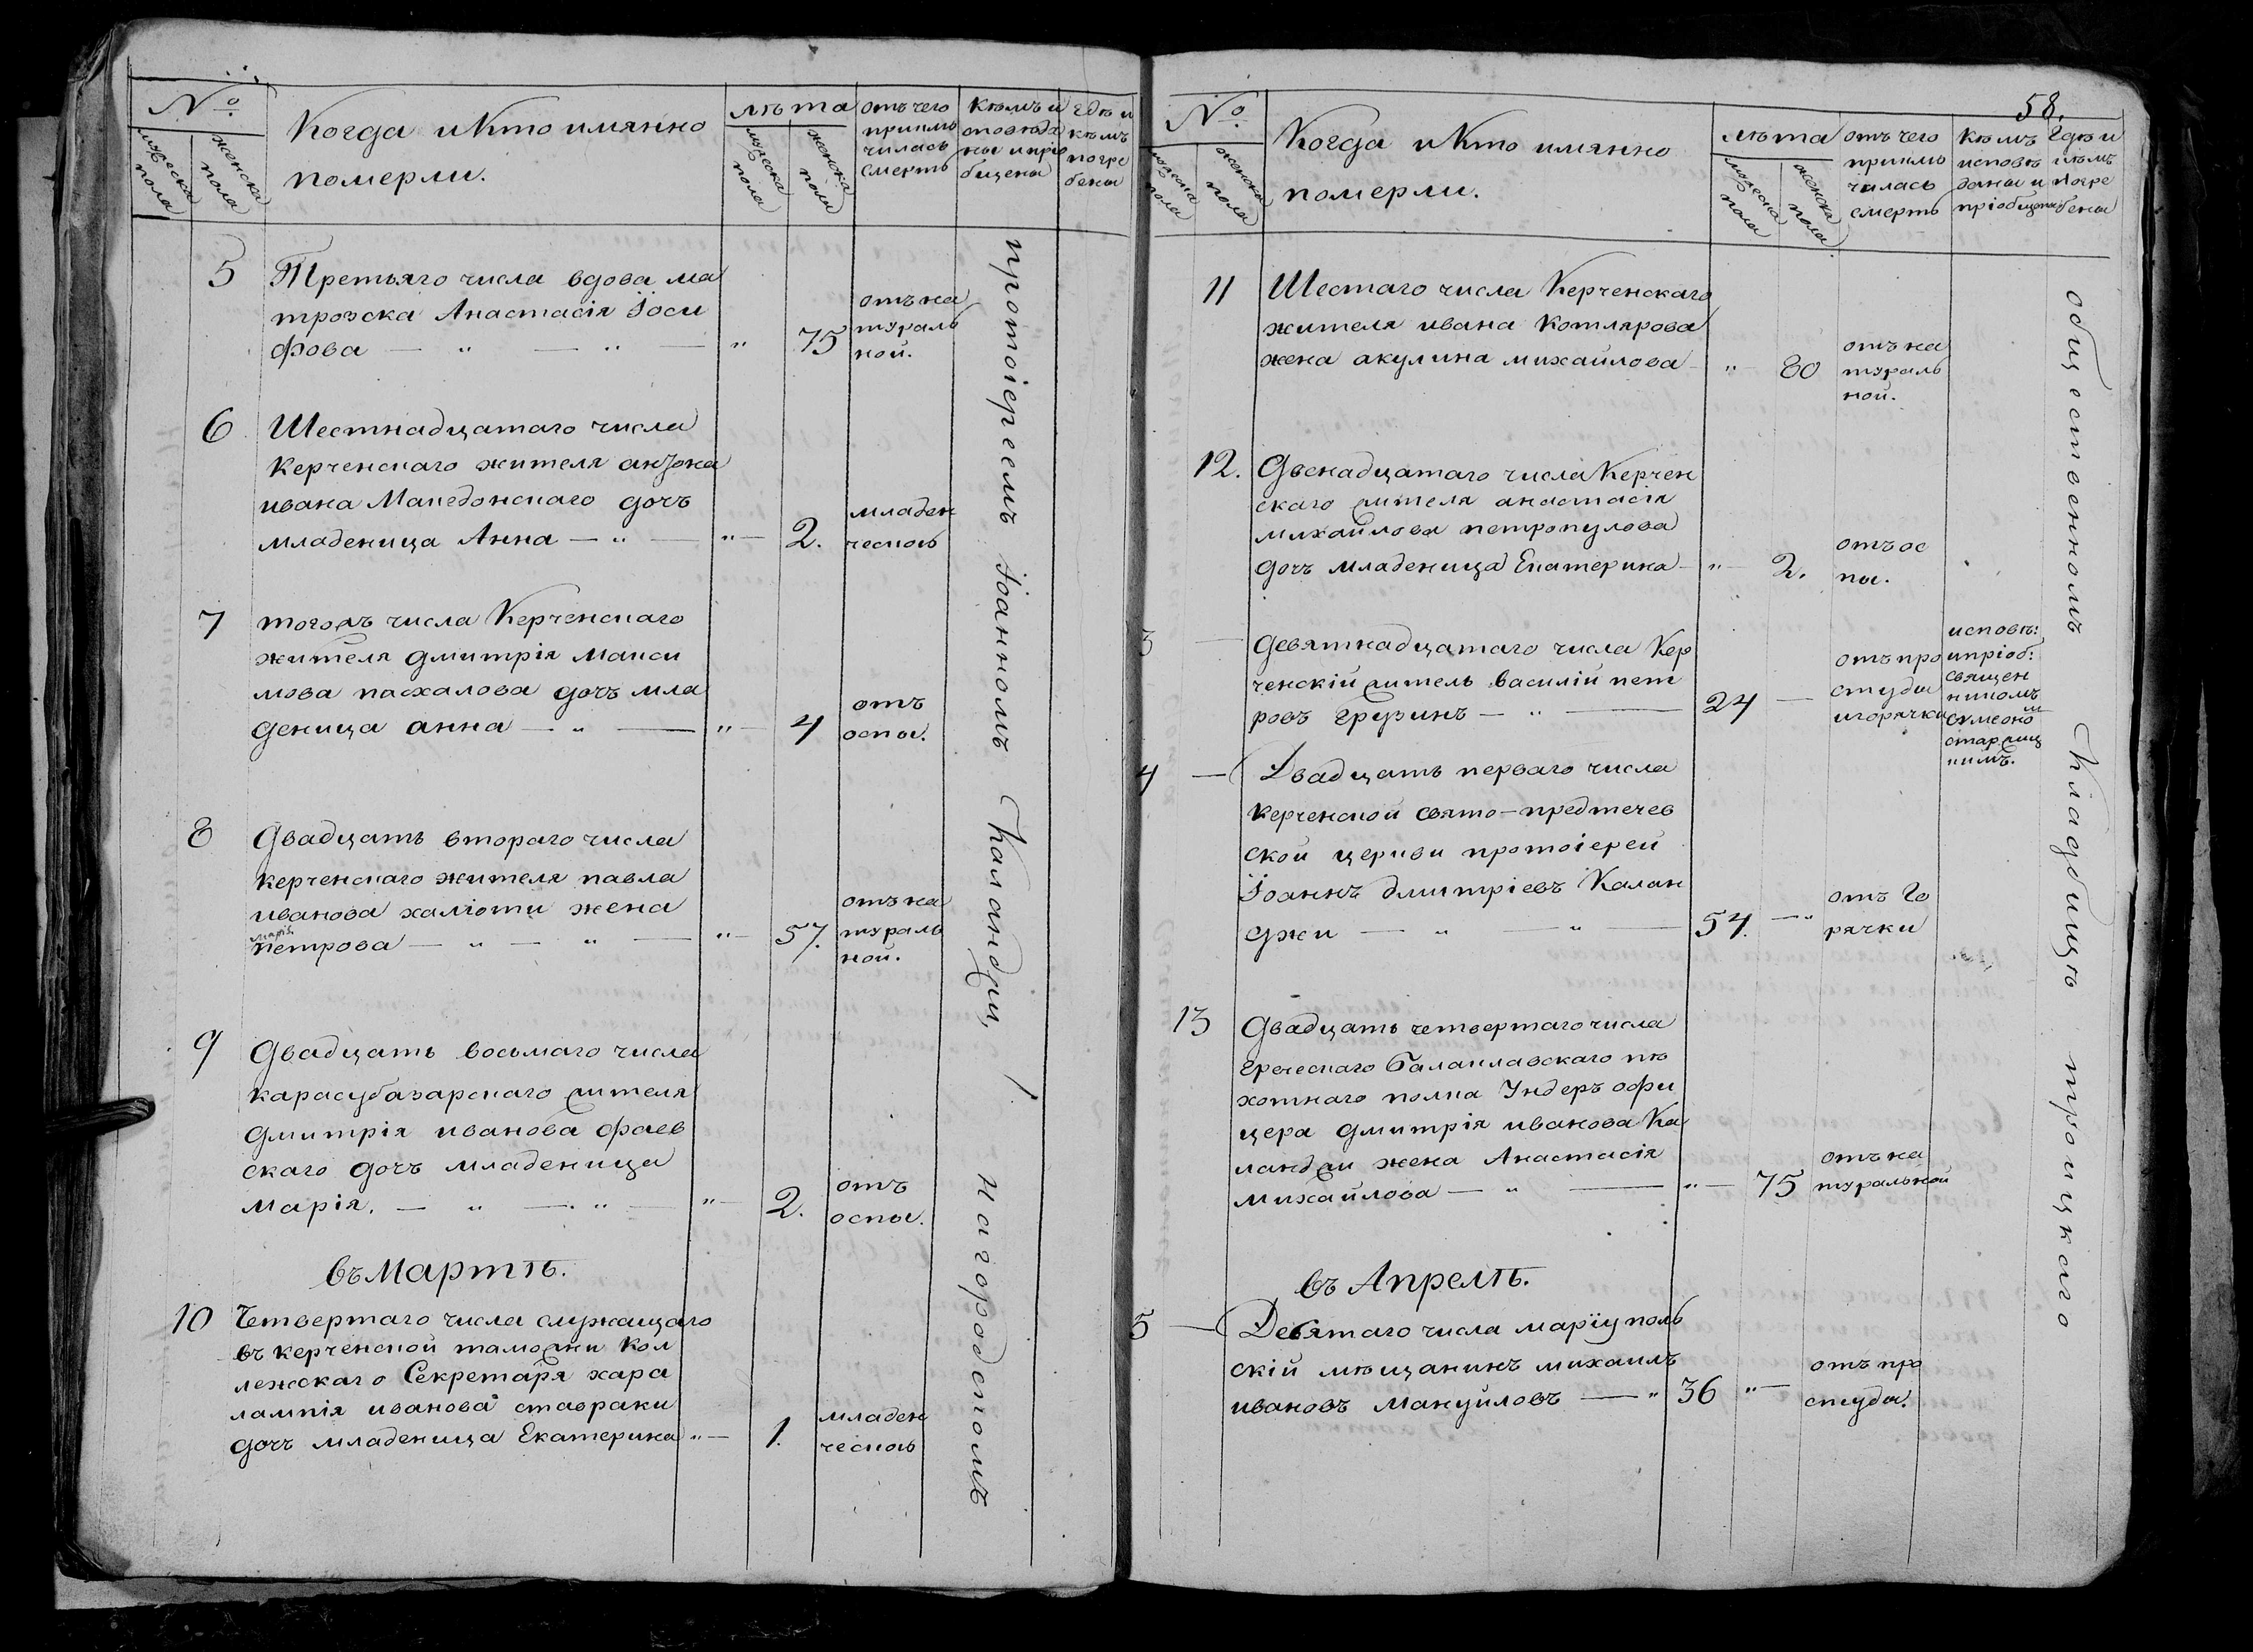 №
мужеска пола
женска пола
Когда и кто имянно
померли.
лѣта
мужеска пола
женска пола
отъ чего
приклю
чилась
смерть
кѣмъ и
споведа
ны и прiо
бщены
гдѣ и
кѣмъ
погре
бены
5
Третьяго числа вдова ма
троzска Анастасiя Iоси
фова — „ — „ —
„ 75
отъ на
тураль
ной.
6
Шестнадцатаго числа
Керченскаго жителя
ивана Македонскаго дочь
младеница Анна — „ —
„ — 2.
младен
ческою
7
тогожъ числа Керченскаго
жителя дмитрiя макси
мова пасхалова дочь мла
деница анна — „ —
„ — 4
отъ
оспы.
8
Двадцать втораго числа
керченскаго жителя павла
иванова халiоти жена
марiя
петрова — „ — „ —
„ — 57.
отъ на
тураль
ной.
9
Двадцать восьмаго числа
карасубазарскаго жителя
дмитрiя иванова фаев
скаго дочь младеница
марiя. — „ — „ —
„ — 2.
отъ
оспы.
въ Мартѣ.
10
Четвертаго числа служащаго
въ керченской таможни Кол
лежскаго Секретаря хара
лампiя иванова ставраки
дочь младеница Екатерина
„ — 1.
младен
ческою
протоiереемъ Iоанномъ Каланджи, на городскомъ
58.
№
мужеска пола
женска пола
Когда и кто имянно
померли.
лѣта
мужеска пола
женска пола
отъ чего
приклю
чилась
смерть
Кѣмъ
исповѣ
даны и
прiобщены
Гдѣ и
кѣмъ
погре
бены
11
Шестаго числа Керченскаго
жителя ивана котлярова
жена акулина михайлова —
„ — 80
отъ на
тураль
ной.
12.
Двенадцатаго числа Керчен
скаго жителя анастасiя
михайлова петропулова
дочь младеница Екатерина —
„ — 2.
отъ ос
пы.
3 —
девятнадцатаго числа Кер
ченскiй житель василiй пет
ровъ грузинъ — „ —
24 —
отъ про
студы
и горячки
исповѣ:
и прiоб:
священ
никомъ
Сѵмеоно
мъ
стариц
кимъ.
4 —
Двадцать перваго числа
керченской свято-предтечев
ской церкви протоiерей
Iоаннъ дмитрiевъ Калан
джи — „ — „ —
54. — „
отъ го
рячки
13
Двадцать четвертаго числа
греческаго балаклавскаго пѣ
хотнаго полка Ундеръ офи
цера дмитрiя иванова Ка
ланджи жена Анастасiя
михайлова — „ —
„ — 75
отъ на
туральной
въ Апрелѣ.
5 —
Девятаго числа марiуполь
скiй мѣщанинъ михаилъ
ивановъ мануйловъ — „
36 „ —
отъ про
студы.
общественномъ Кладбищѣ троицкаго